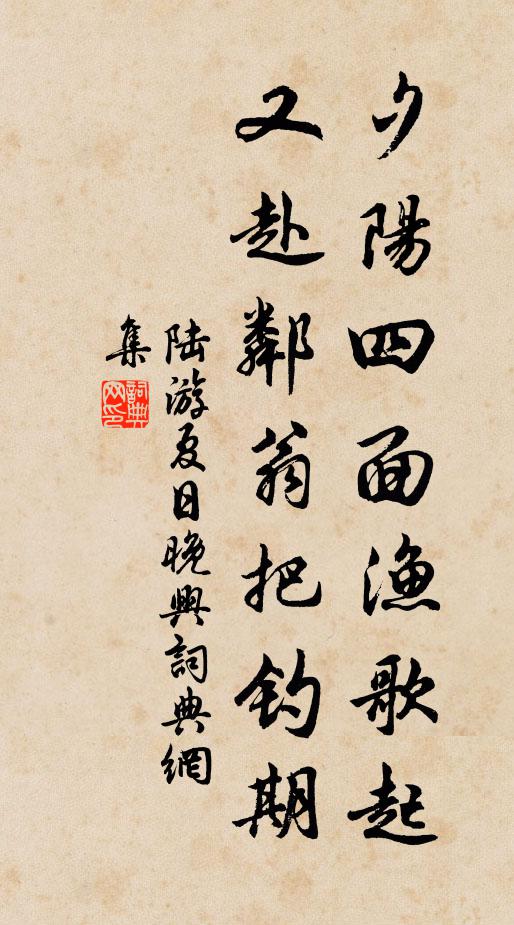 夕陽四面漁歌起
又赴鄰翁把釣期
陆游夏日晚興詞典網
集
詞典網印